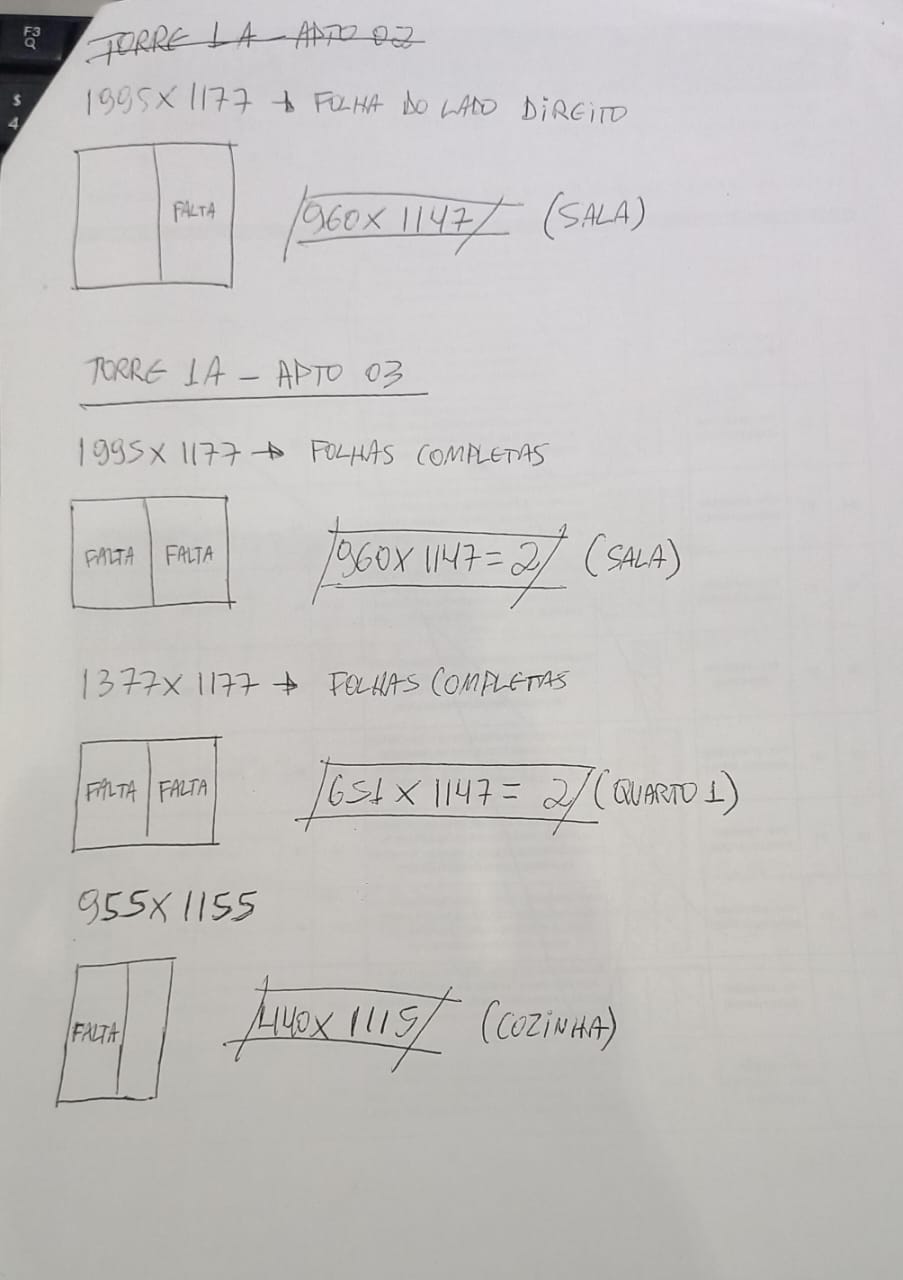 F3
Q
$
4
TORRE 1A - APTO 02
1995 X 1177 → FOLHA DO LADO DIREITO
FALTA
960 X 1147 (SALA)
TORRE 1A - APTO 03
1995 X 1177 → FOLHAS COMPLETAS
FALTA FALTA
960 X 1147 = 2 (SALA)
1377 X 1177 → FOLHAS COMPLETAS
FALTA FALTA
651 X 1147 = 2 (QUARTO 1)
955 X 1155
FALTA
440 X 1115 (COZINHA)